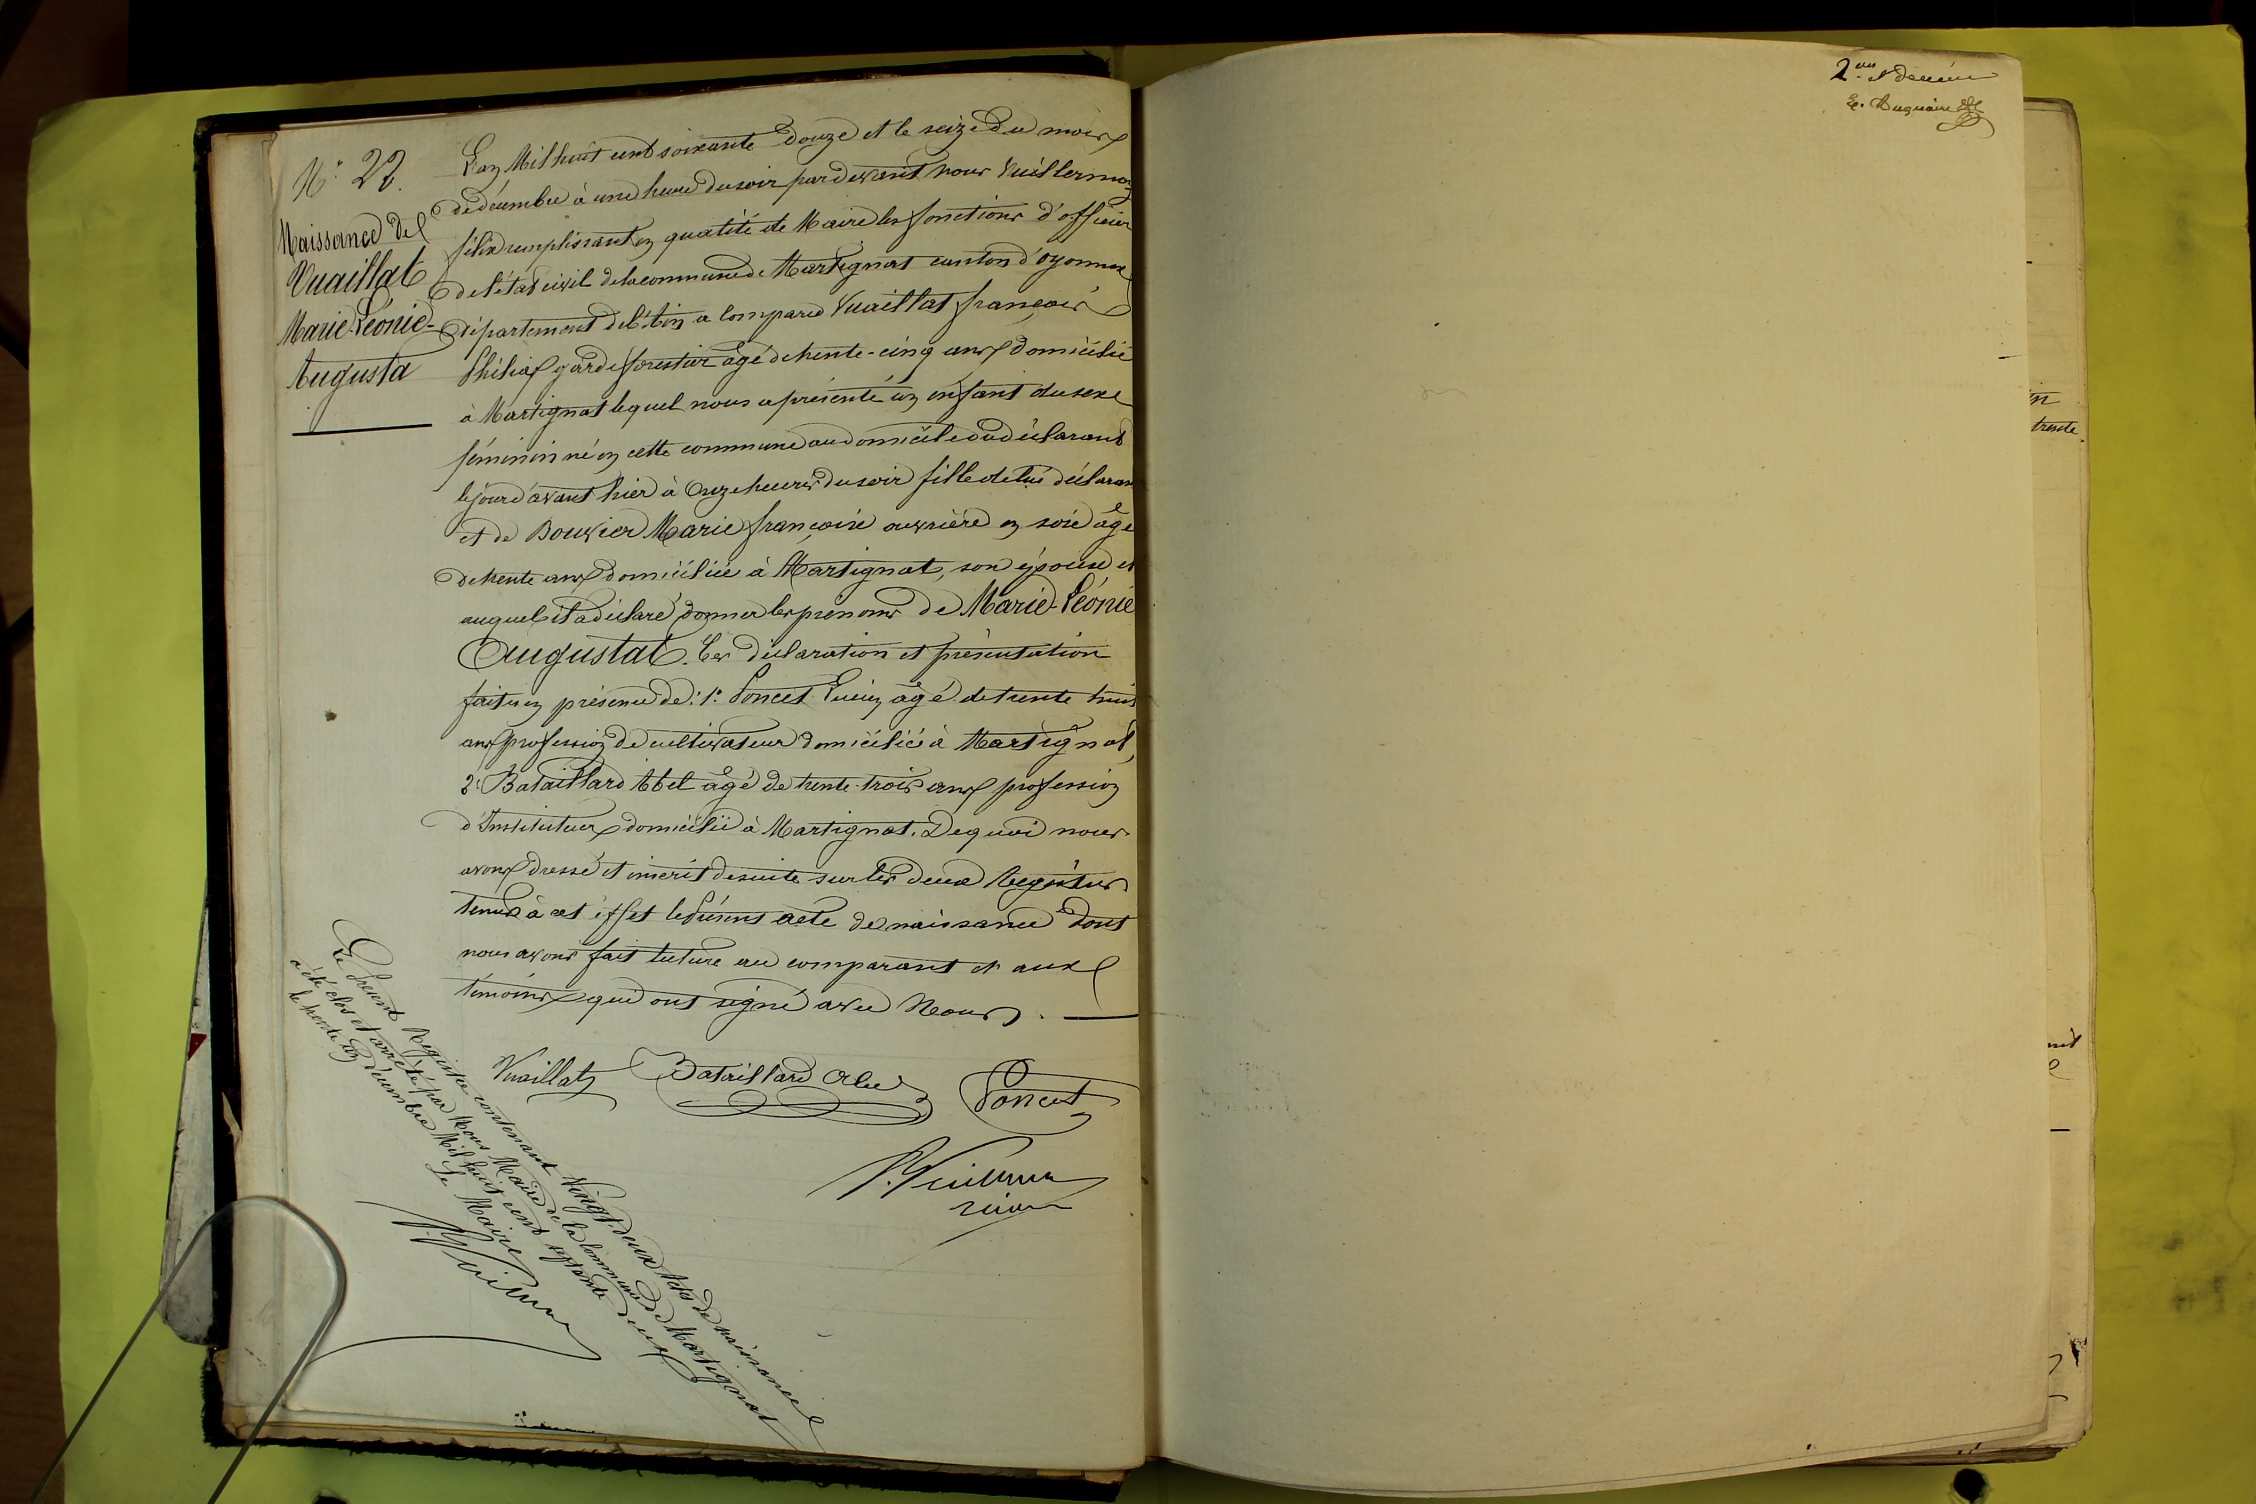 N° 22.
Naissance de
Vuaillat
Marie-Léonie-
Augusta
L'an Mil huit cent soixante douze et le seize du mois
de décembre à une heure du soir par devant nous Vuillermoz
félix remplissant en qualité de Maire les fonctions d'officier
de l'état civil de la commune de Martignat canton d'oyonnax
département de l'Ain a comparu Vuaillat françois
garde forestier âgé de trente-cinq ans domicilié
à Martignat lequel nous a présenté un enfant du sexe
féminin né en cette commune au domicile du déclarant
le jour d'avant hier à Onze heures du soir fille de lui déclarant
et de Bouvier Marie françoise ouvrière en soie âgé
de trente ans domiciliée à Martignat, son épouse et
auquel il a déclaré donner les prénoms de Marie-Léonie
Augustat. Les déclaration et présentation
faites en présence de: 1° Poncet Lucien âgé de trente huit
ans profession de cultivateur domicilié à Martignat,
2° Bataillard Abel âgé de trente-trois ans profession
d'Instituteur domicilié à Martignat. De quoi nous
avons dressé et inscrit de suite sur les deux Registres
tenus à cet effet le présent acte de naissance dont
nous avons fait lecture au comparant et aux
témoins qui ont signé avec Nous.
Vuaillat Bataillard Abel Poncet
Le présent Registre contenant Vingt-deux Actes de naissance
a été clos et arrêté par Nous Maire de la Commune de Martignat
le trente un décembre Mil huit cent septante deux
Le Maire
2me et dernier
trente